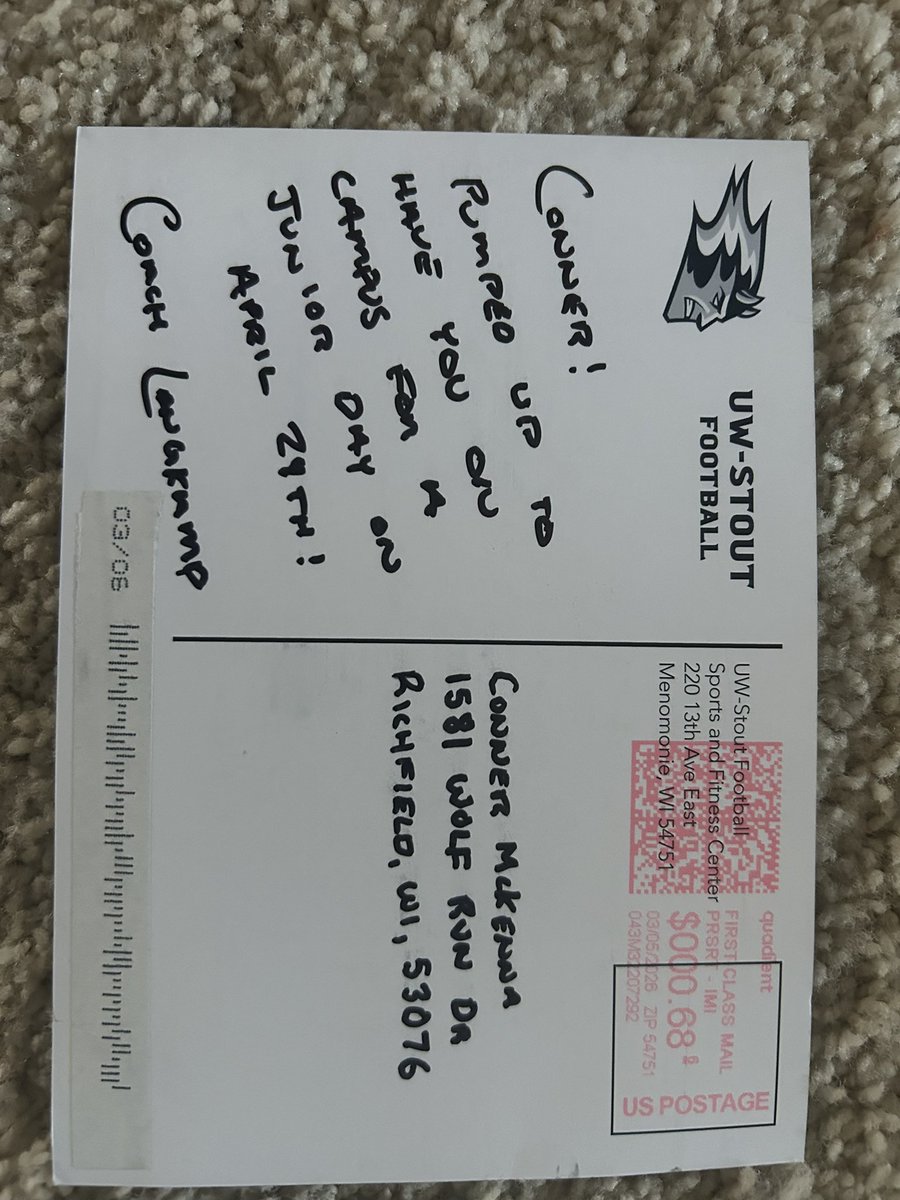 UW-STOUT
FOOTBALL
CONNER!
PUMPED UP TO
HAVE YOU ON
CAMPUS FOR A
JUNIOR DAY ON
APRIL 29TH!
COACH LANGKAMP
UW-Stout Football
Sports and Fitness Center
220 13th Ave East
Menomonie, WI 54751
quadient
FIRST-CLASS MAIL
PRSRT - IMI
$000.68⁰
03/05/2026 ZIP 54751
043M32207292
US POSTAGE
CONNER MCKENNA
1581 WOLF RUN DR
RICHFIELD, WI, 53076
03/06